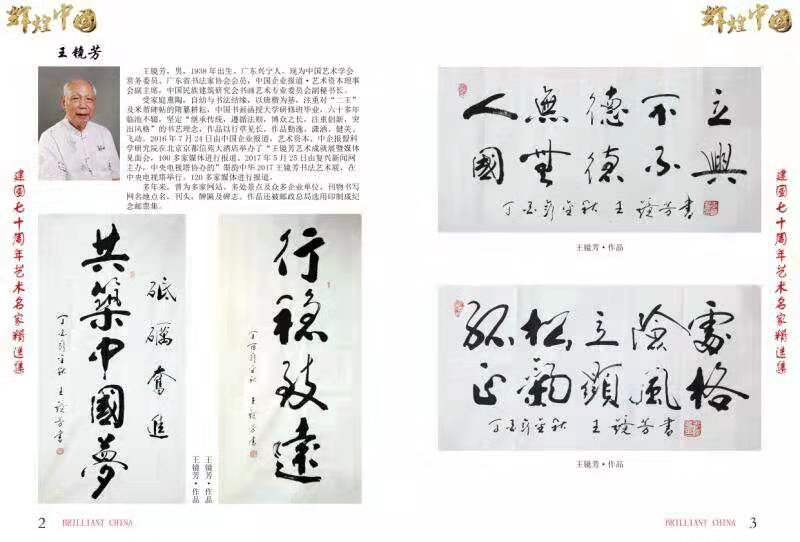 辉煌中国
辉煌中国
王镜芳
王镜芳，男，1938 年出生，广东兴宁人。现为中国艺术学会
常务委员，广东省书法家协会会员，中国企业报道·艺术资本理事
会副主席，中国民族建筑研究会书画艺术专业委员会副秘书长。
受家庭熏陶，自幼与书法结缘，以唐楷为基，注重对“二王”
及米芾碑帖的隋纂耕耘，中国书画函授大学研修班毕业，六十多年
临池不辍，坚定“继承传统，遵循法则，博众之长，注重创新，突
出风格”的书艺理念，作品以行草见长。作品勤逸，潇洒，健美，
飞动。2016 年 7 月 24 日由中国企业报道，艺术资本，中企报盟科
学研究院在北京京都信苑大酒店举办了“王镜芳艺术成就展暨媒体
见面会，100 多家媒体进行报道。2017 年 5 月 25 日由复兴新闻网
主办，中央电视塔协办的“墨韵中华 2017 王镜芳书法艺术展，在
中央电视塔举行。120 多家媒体进行报道。
多年来，曾为多家网站、多处景点及众多企业单位，刊物书写
网名地点名、刊头、牌匾及碑志。作品还被邮政总局选用印制成纪
念邮票集。
建国七十周年艺术名家精选集
砥礪奮進
共築中國夢
王鏡芳書
王镜芳·作品
行穩致遠
王鏡芳書
王镜芳·作品
人無德不立
國無德不興
王鏡芳書
王镜芳·作品
孤松立險處
正氣顯風格
王鏡芳書
王镜芳·作品
建国七十周年艺术名家精选集
2 BRILLIANT CHINA
BRILLIANT CHINA 3